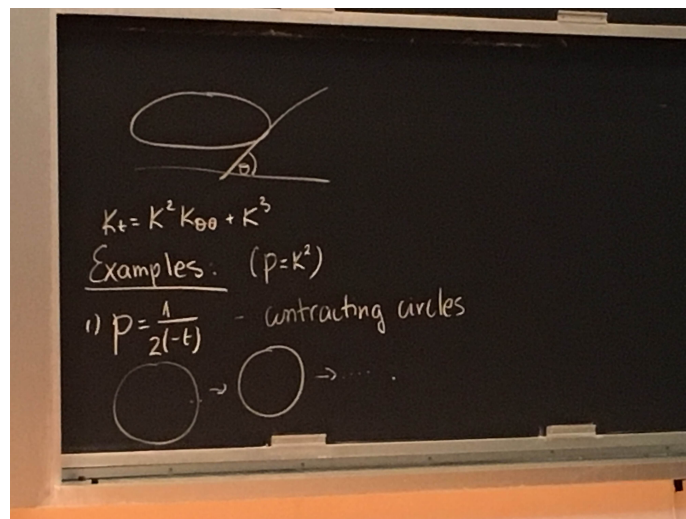 θ
K_t = K² K_θθ + K³
Examples: (p=K²)
1) p = 1/2(-t) - contracting circles
→ → .... .